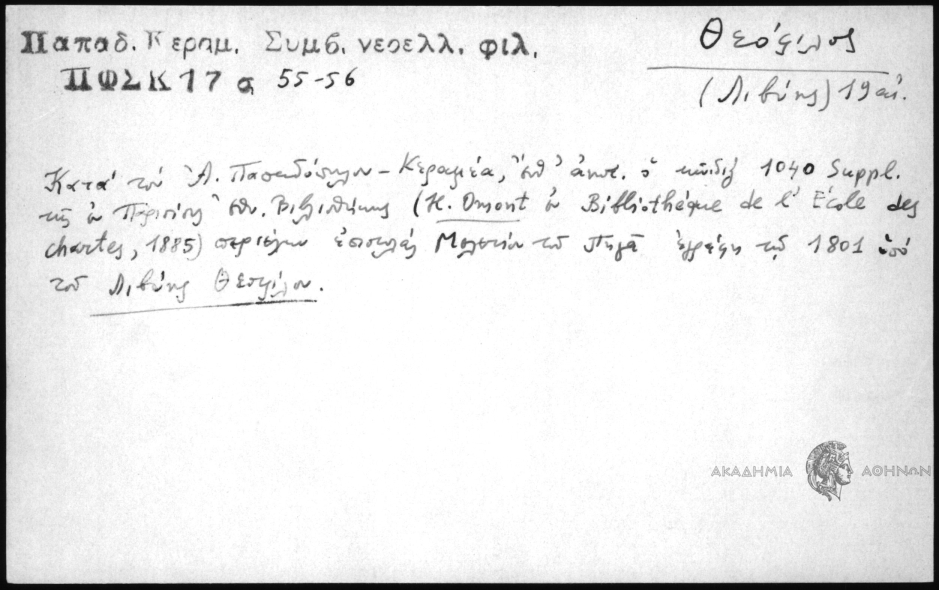 Παπαδ. Κεραμ. Συμβ. νεοελλ. φιλ.
ΠΦΣΚ 17 σ 55-56
Θεόφιλος
(Λιβύης) 19 αἰ.
Κατὰ τὸν Ἀ. Παπαδόπουλον-Κεραμέα, ὁ κῶδιξ 1040 Suppl.
τῆς ἐν Παρισίοις ἐθν. Βιβλιοθήκης (H. Omont ἐν Bibliothèque de l'École des
chartes, 1885) περιέχων ἐπιστολὰς Μελετίου τοῦ Πηγᾶ ἐγράφη τῷ 1801 ὑπὸ
τοῦ Λιβύης Θεοφίλου.
ΑΚΑΔΗΜΙΑ ΑΘΗΝΩΝ